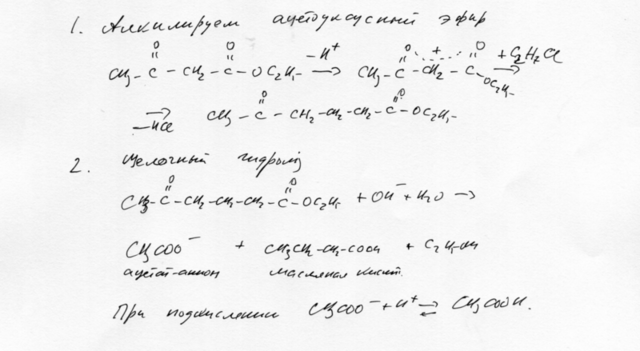 1. Алкилируем ацетоуксусный эфир
O O −H⁺ O + O + C₂H₅Cl
CH₃ − C − CH₂ − C − OC₂H₅ → CH₃ − C − CH₂ − C − OC₂H₅ →
→ −HCl CH₃ − C − CH₂ − CH₂ − CH₂ − C − OC₂H₅
2. Щелочный гидролиз
CH₃ − C − CH₂ − CH₂ − CH₂ − C − OC₂H₅ + OH⁻ + H₂O →
CH₃COO⁻ + CH₃CH₂ − CH₂ − COOH + C₂H₅OH
ацетат-анион масляная кисл.
При подкислении CH₃COO⁻ + H⁺ ⇄ CH₃COOH.